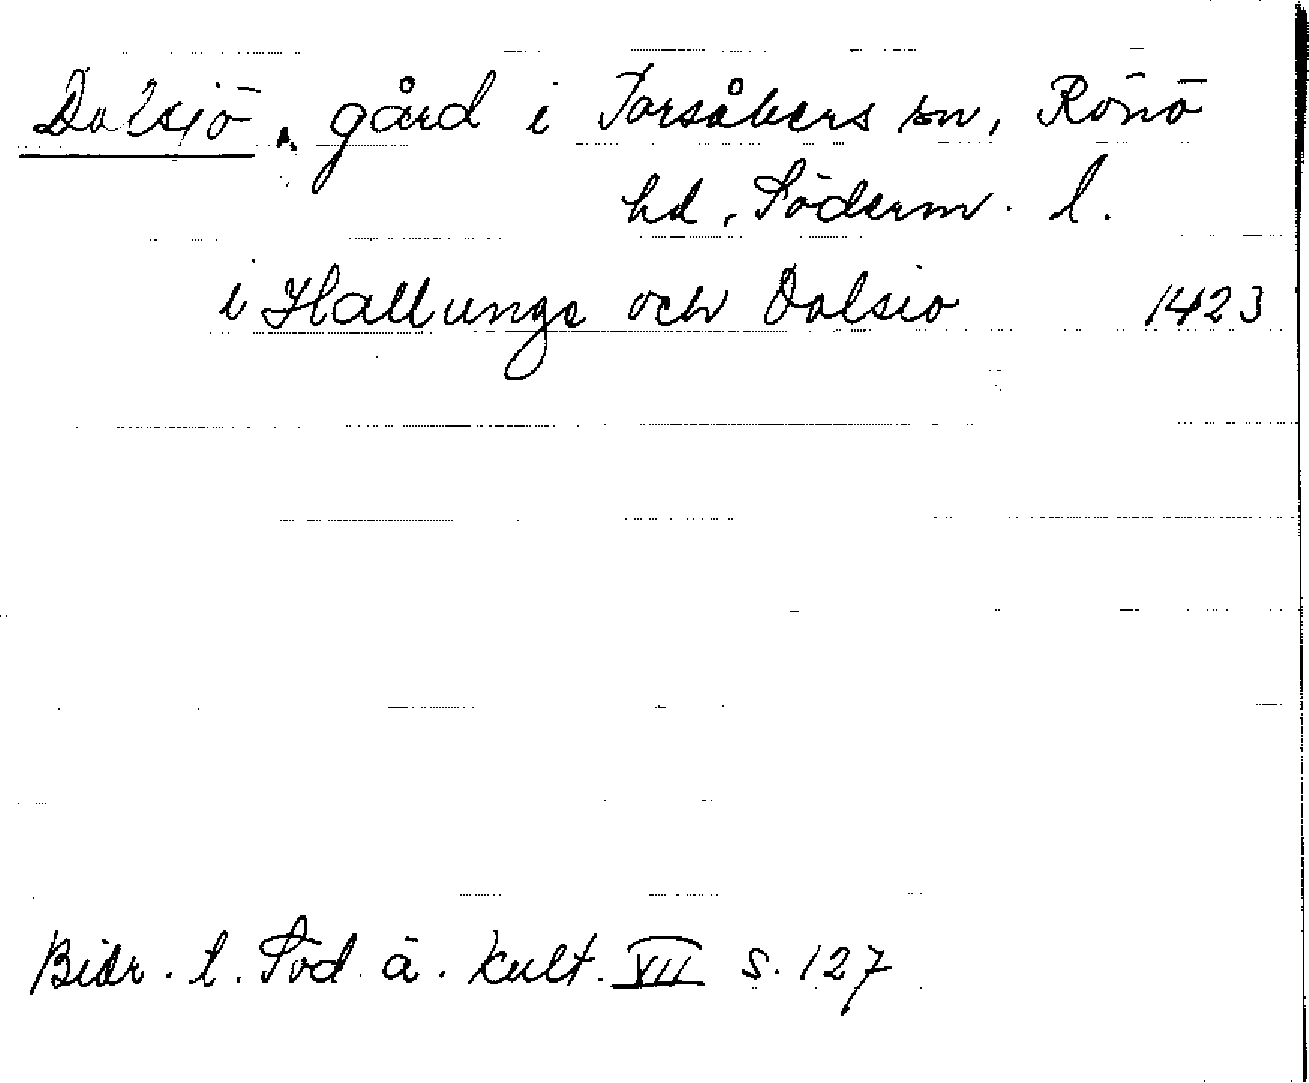 Dalsjö, gård i Torsåkers sn, Rönö
hd, Söderm. l.
i Hallunge och Dalsio 1423
Bidr. t. Söd. ä. kult. VII s. 127